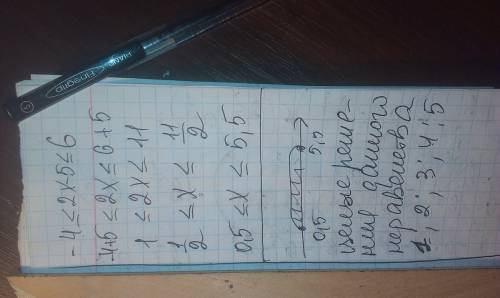 -4 ≤ 2x-5 ≤ 6
-4+5 ≤ 2x ≤ 6+5
1 ≤ 2x ≤ 11
1/2 ≤ x ≤ 11/2
0,5 ≤ x ≤ 5,5
0,5 5,5
целые реше-
ния данного
неравенства
1; 2; 3; 4; 5
PIANO Finegrip